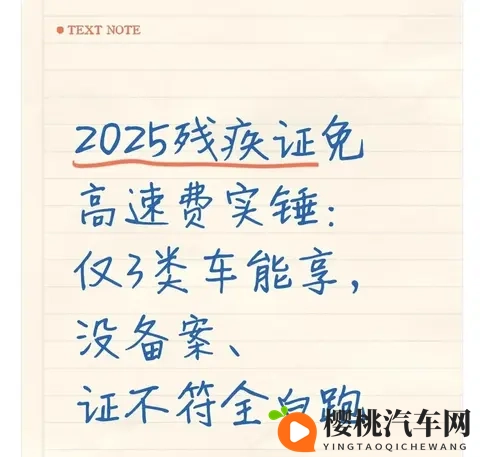 TEXT NOTE
2025残疾证免
高速费实锤:
仅3类车能享,
没备案、
证不符全白跑
樱桃汽车网
YINGTAOQICHEWANG